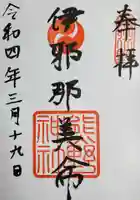 奉拝
伊邪那美命
熊野神社
令和四年三月十九日